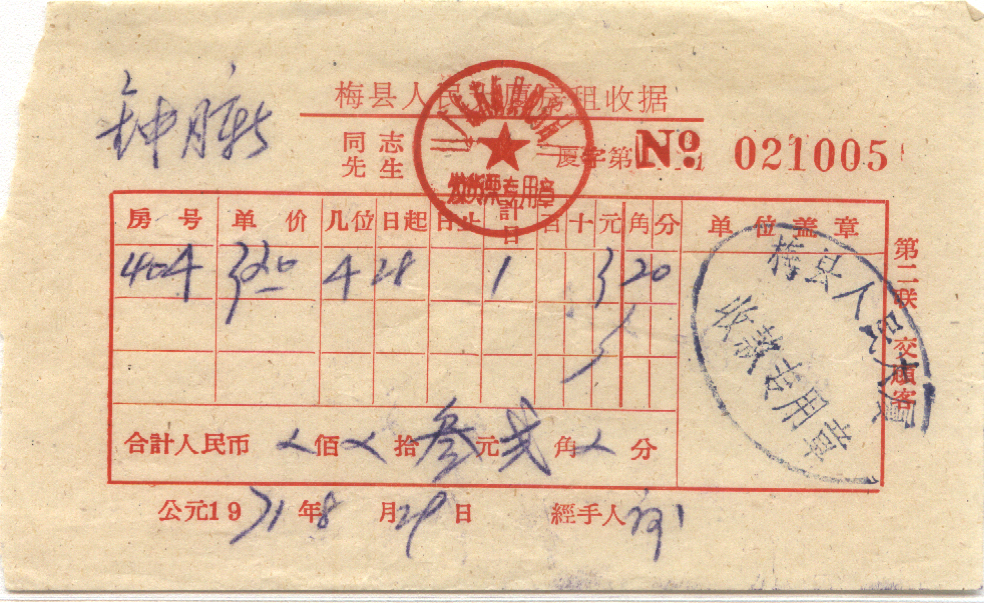 梅县人民大厦房租收据
钟
同志
先生
厦字第 № 021005
房号 单价 几位 日起 日止 計日 百 十 元 角 分 单位盖章
404 320 4 28 1 3 20
合計人民币 佰 拾 叁 元 弍 角 分
公元1971年8月29日 經手人
第二联 交顧客
发货票专用章
梅县人民大厦
收款专用章